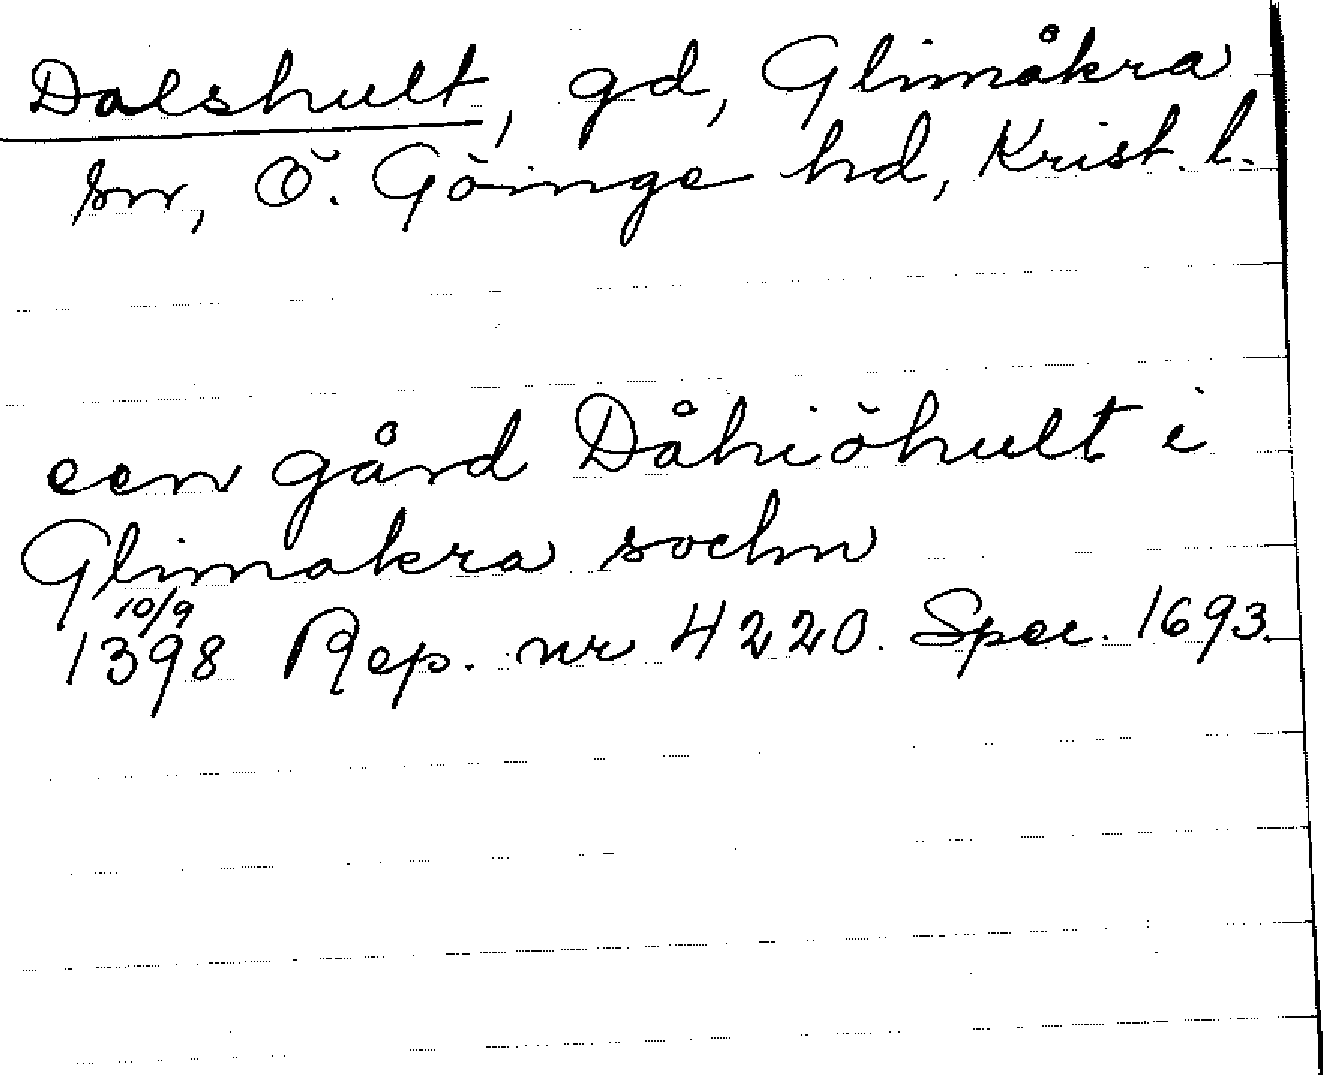 Dalshult, gd, Glimåkra
sn, Ö. Göinge hd, Krist. l.
een gård Dåhiöhult i
Glimakra sochn
10/9
1398 Rep. nr 4220. Spec. 1693.